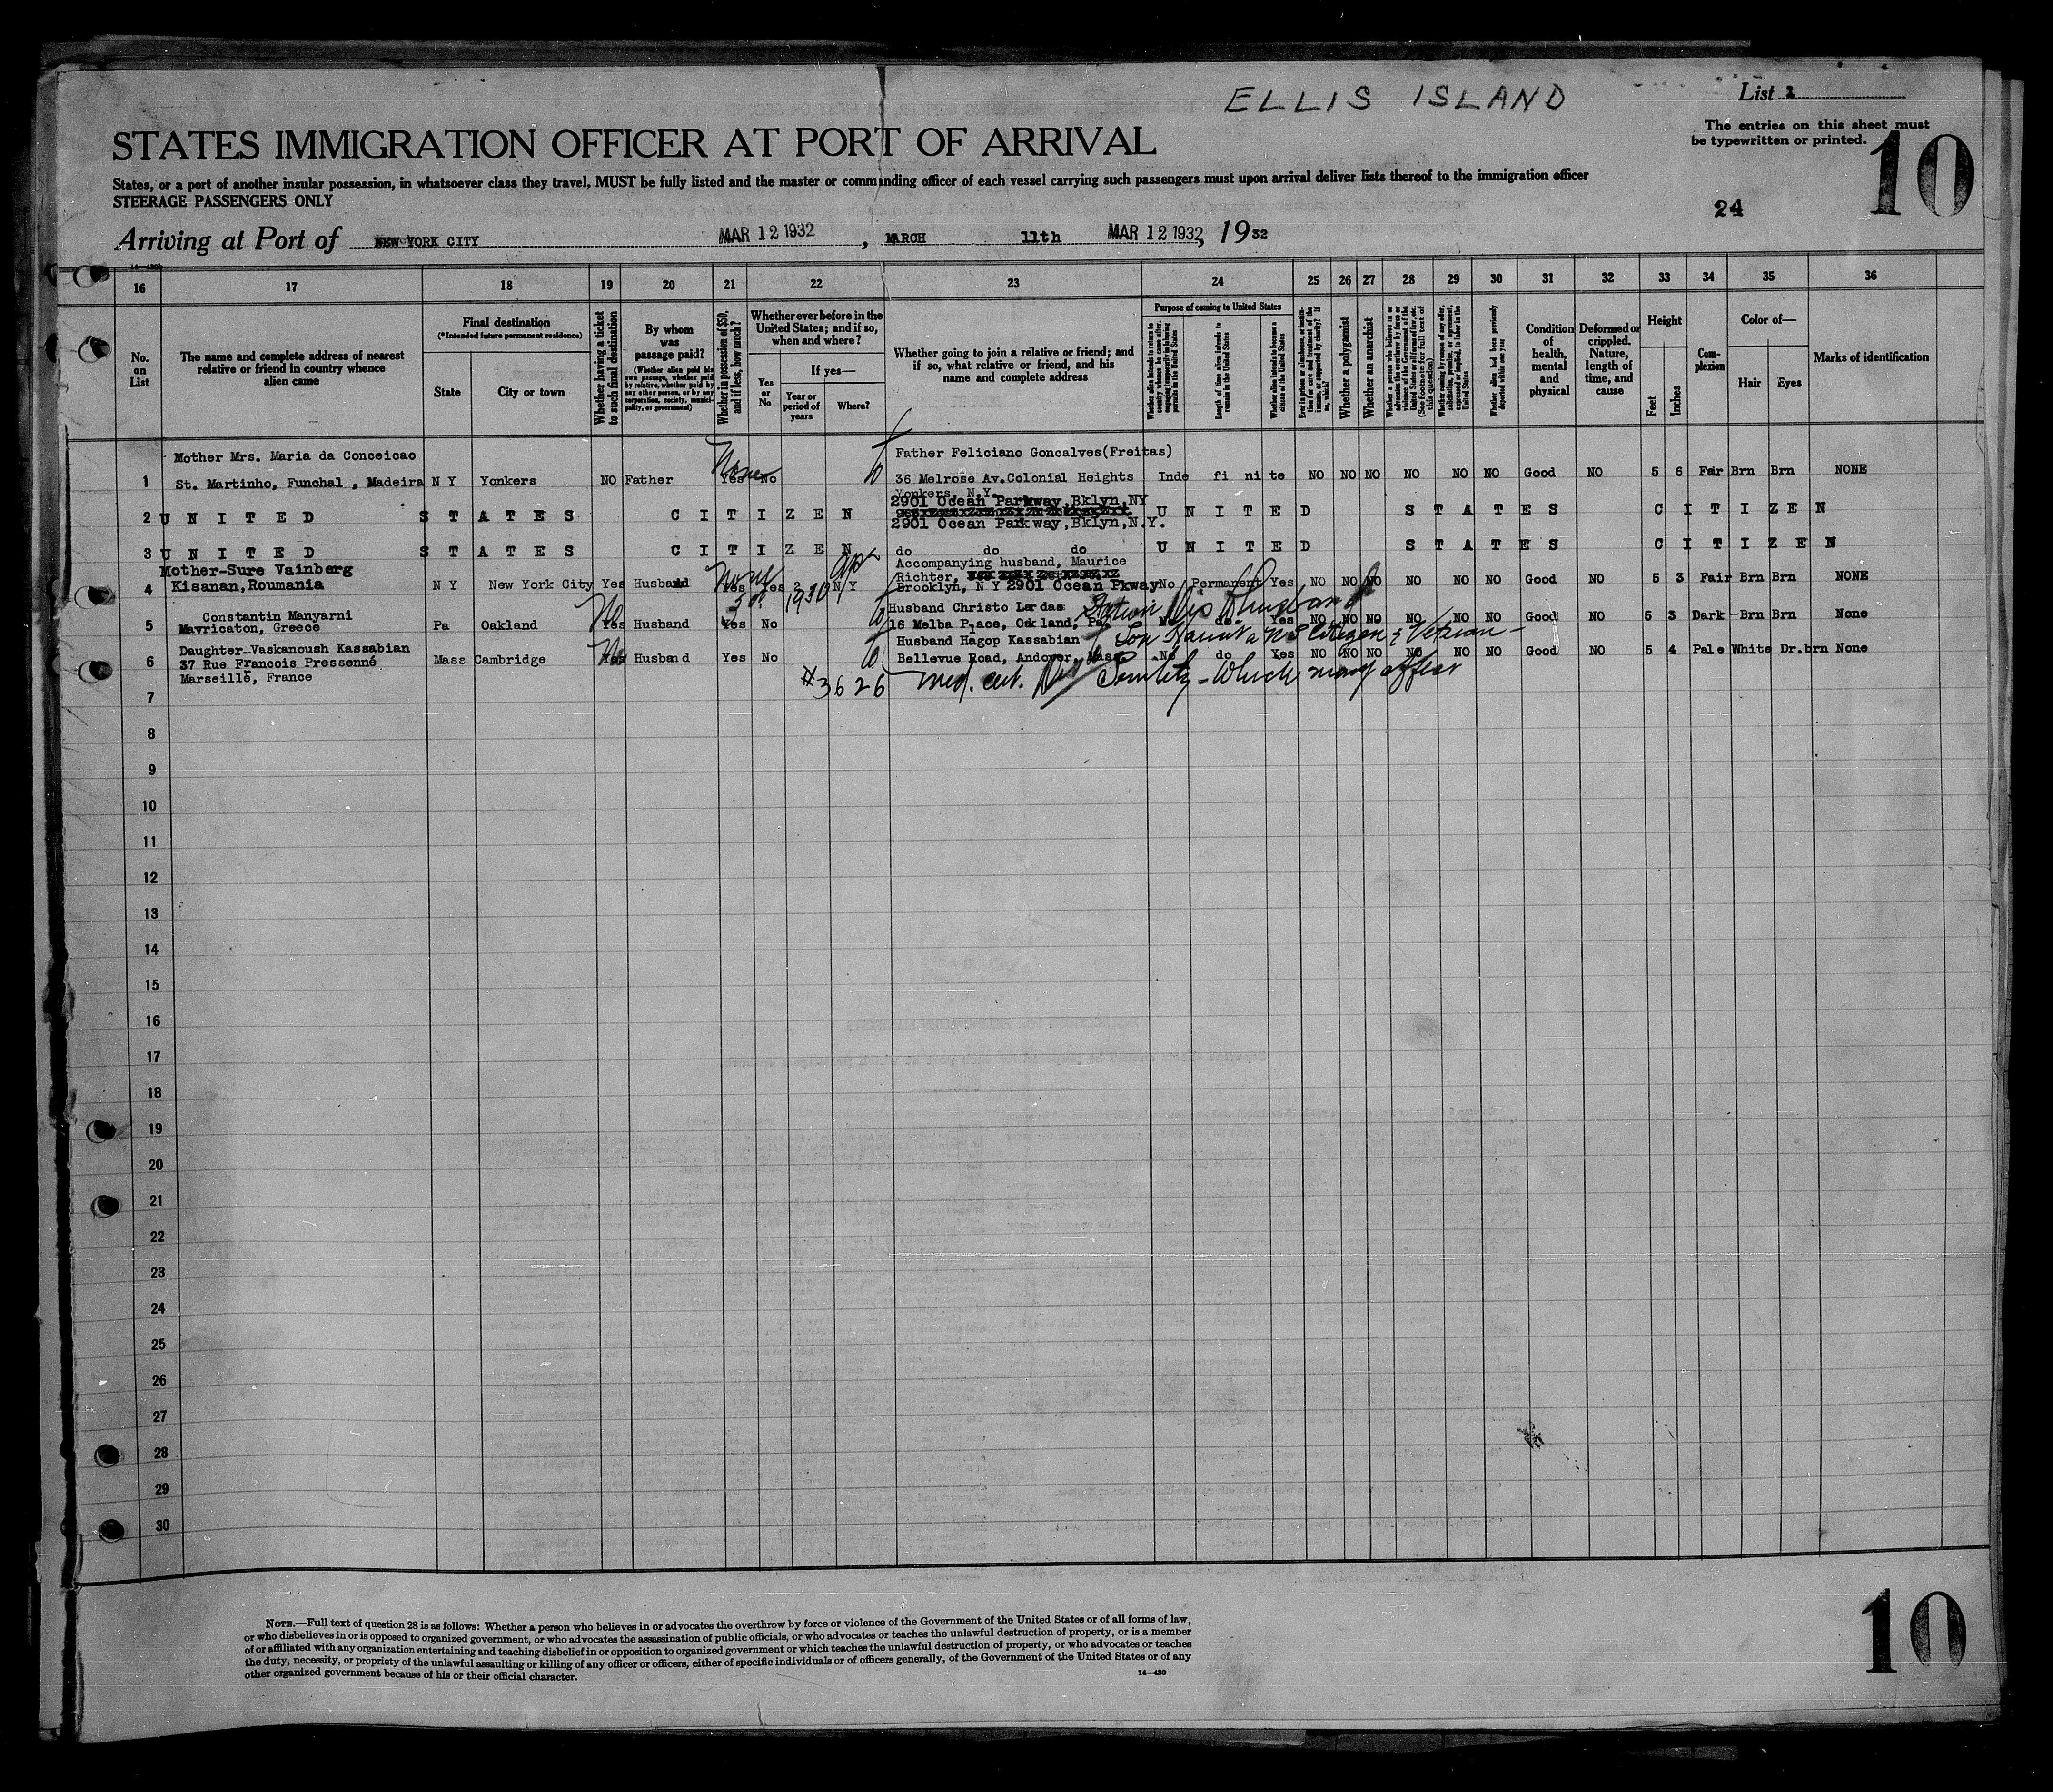 ELLIS ISLAND
List 1
The entries on this sheet must
be typewritten or printed.
10
STATES IMMIGRATION OFFICER AT PORT OF ARRIVAL
States, or a port of another insular possession, in whatsoever class they travel, MUST be fully listed and the master or commanding officer of each vessel carrying such passengers must upon arrival deliver lists thereof to the immigration officer
STEERAGE PASSENGERS ONLY
24
Arriving at Port of NEW YORK CITY MAR 12 1932, MARCH 11th MAR 12 1932, 1932
14-430
16 17 18 19 20 21 22 23 24 25 26 27 28 29 30 31 32 33 34 35 36
No. on List
The name and complete address of nearest relative or friend in country whence alien came
Final destination
(*Intended future permanent residence)
State
City or town
Whether having a ticket to such final destination
By whom was passage paid?
(Whether alien paid his own passage, whether paid by relative, whether paid by any other person, or by any corporation, society, municipality, or government)
Whether in possession of $50, and if less, how much?
Whether ever before in the United States; and if so, when and where?
Yes or No
If yes—
Year or period of years
Where?
Whether going to join a relative or friend; and if so, what relative or friend, and his name and complete address
Purpose of coming to United States
Length of time alien intends to remain in the United States
Whether alien intends to become a citizen of the United States
Whether a polygamist
Whether an anarchist
Whether alien had been previously deported within one year
Condition of health, mental and physical
Deformed or crippled. Nature, length of time, and cause
Height
Feet
Inches
Complexion
Color of—
Hair
Eyes
Marks of identification
Mother Mrs. Maria da Conceicao Father Feliciano Goncalves(Freitas)
1 St. Martinho, Funchal , Madeira N Y Yonkers NO Father None Yes No 36 Melrose Av.Colonial Heights Inde fi ni te NO NO NO NO NO NO Good NO 5 6 Fair Brn Brn NONE
Yonkers, N.Y.
2901 Ocean Parkway,Bklyn,NY
2 UNITED STATES CITIZEN UNITED STATES CITIZEN
2901 Ocean Parkway,Bklyn,N.Y.
3 UNITED STATES CITIZEN do do do UNITED STATES CITIZEN
Mother-Sure Vainberg Accompanying husband, Maurice
Richter,
4 Kisanan,Roumania N Y New York City Yes Husband None Yes Yes 1930 N Y Brooklyn, N Y 2901 Ocean Pkway No Permanent Yes NO NO NO NO NO NO Good NO 5 3 Fair Brn Brn NONE
Constantin Manyarni Husband Christo Lardas
5 Mavricaton, Greece Pa Oakland No Yes Husband Yes No 16 Melba Place, Oakland, Pa No do Yes NO NO NO NO NO NO Good NO 5 3 Dark Brn Brn None
Daughter Vaskanoush Kassabian Husband Hagop Kassabian
6 37 Rue Francois Pressenné Mass Cambridge Husband Yes No Bellevue Road, Andover, Mass No do Yes NO NO NO NO NO NO Good NO 5 4 Pale White Dr.brn None
Marseille, France
#3626 Med. cert. Senility - Which may affect
7
8
9
10
11
12
13
14
15
16
17
18
19
20
21
22
23
24
25
26
27
28
29
30
NOTE.—Full text of question 28 is as follows: Whether a person who believes in or advocates the overthrow by force or violence of the Government of the United States or of all forms of law,
or who disbelieves in or is opposed to organized government, or who advocates the assassination of public officials, or who advocates or teaches the unlawful destruction of property, or is a member
of or affiliated with any organization entertaining and teaching disbelief in or opposition to organized government or which teaches the unlawful destruction of property, or who advocates or teaches
the duty, necessity, or propriety of the unlawful assaulting or killing of any officer or officers, either of specific individuals or of officers generally, of the Government of the United States or of any
other organized government because of his or their official character.
14—430
10